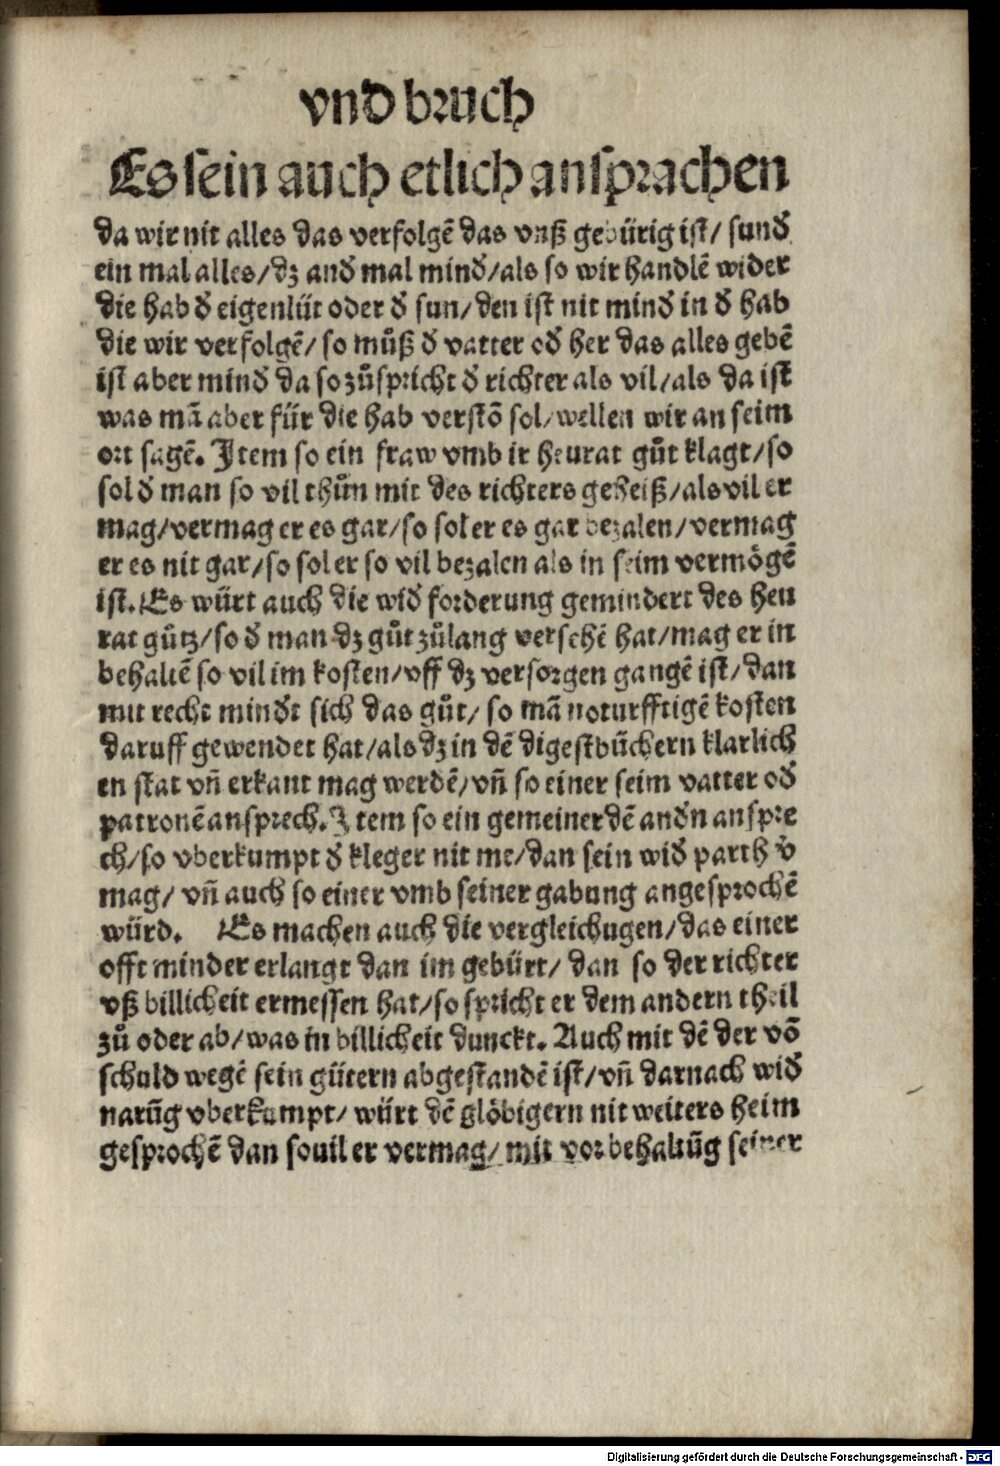 vnd bruch
Es sein auch etlich ansprachen
da wir nit alles das verfolgē das vnß gebürig ist/ sunđ
ein mal alles/dz anđ mal minđ/als so wir handlē wider
die hab đ eigenlüt oder đ sun/den ist nit minđ in đ hab
die wir verfolgē/ so můß đ vatter ođ her das alles gebē
ist aber minđ da so zůspricht đ richter als vil/als da ist
was mā aber für die hab verstō sol/wellen wir an seim
ort sagē. Item so ein fraw vmb ir heurat gůt klagt/so
sol đ man so vil thůn mit des richters geheiß/als vil er
mag/vermag er es gar/so sol er es gar bezalen/vermag
er es nit gar/so sol er so vil bezalen als in seim vermögē
ist. Es würt auch die wiđ forderung gemindert des heu
rat gůtz/so đ man dz gůt zůlang versehē hat/mag er in
behaltē so vil im kosten/vff dz versorgen gangē ist/dan
mit recht mindt sich das gůt/ so mā noturfftigē kosten
daruff gewendet hat/als dz in dē digestbůchern klarlich
en stat vñ erkant mag werdē/vñ so einer seim vatter ođ
patronē ansprech. Item so ein gemeiner dē andn anspre
ch/so vberkumpt đ kleger nit me/dan sein wiđ parth v̄
mag/ vñ auch so einer vmb seiner gabung angesprochē
würd. Es machen auch die vergleichugen/das einer
offt minder erlangt dan im gebürt/ dan so der richter
vß billicheit ermessen hat/so spricht er dem andern theil
zů oder ab/was in billicheit dunckt. Auch mit dē der vō
schuld wegē sein gütern abgestandē ist/vñ darnach wiđ
narūg vberkumpt/ würt dē glöbigern nit weiters heim
gesprochē dan souil er vermag/ mit vorbehaltūg seiner
Digitalisierung gefördert durch die Deutsche Forschungsgemeinschaft - DFG